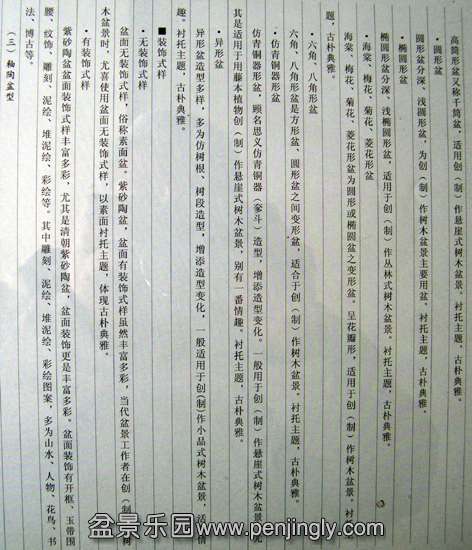 高筒形盆又称千筒盆，适用创（制）作悬崖式树木盆景。衬托主题，古朴典雅。
·圆形盆
圆形盆分深、浅圆形盆，为创（制）作树木盆景主要用盆，衬托主题，古朴典雅。
·椭圆形盆
椭圆形盆分深、浅椭圆形盆，适用于创（制）作丛林式树木盆景。衬托主题，古朴典雅。
·海棠、梅花、菊花、菱花形盆
海棠、梅花、菊花、菱花形盆为圆形或椭圆盆之变形盆。呈花瓣形，适用于创（制）作树木盆景。衬
题，古朴典雅。
·六角、八角形盆
六角、八角形盆是方形盆、圆形盆之间变形盆，适合于创（制）作树木盆景。衬托主题，古朴典雅。
·仿青铜器形盆
仿青铜器形盆，顾名思义仿青铜器（ ）造型，增添造型变化。一般用于创（制）作悬崖式树木盆景，尤
其是适用于用藤本植物创（制）作悬崖式树木盆景，别有一番情趣。衬托主题，古朴典雅。
·异形盆
异形盆造型多样，多为仿树根、树段造型，增添造型变化，一般适用于创(制)作小品式树木盆景，活 情
趣。衬托主题，古朴典雅。
■装饰式样
·无装饰式样
盆面无装饰式样，俗称素面盆。紫砂陶盆，盆面有装饰式样虽然丰富多彩，当代盆景工作者在创（制） 树
木盆景时，尤喜使用盆面无装饰式样，以素面衬托主题，体现古朴典雅。
·有装饰式样
紫砂陶盆盆面装饰式样丰富多彩，尤其是清朝紫砂陶盆，盆面装饰更是丰富多彩，盆面装饰有开框、玉带围
腰、纹饰、雕刻、泥绘、堆泥绘、彩绘等。其中雕刻、泥绘、堆泥绘、彩绘图案，多为山水、人物、花鸟、书
法、博古等。
（三）釉陶盆型
盆景乐园www.penjingly.com